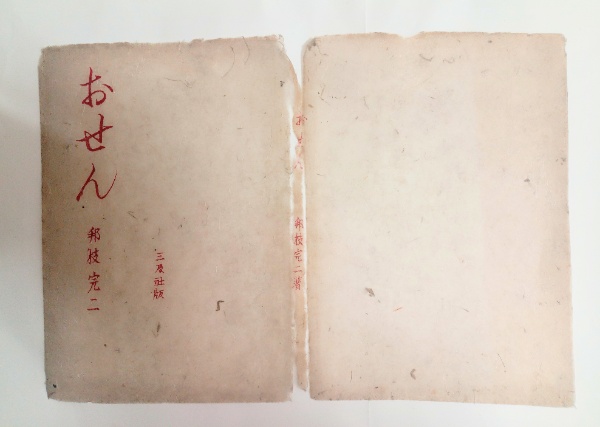 おせん
邦枝完二
三康社版
おせん
邦枝完二著